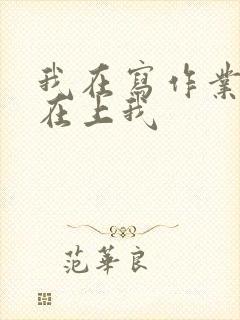 我在寫作業
在上我
范華良